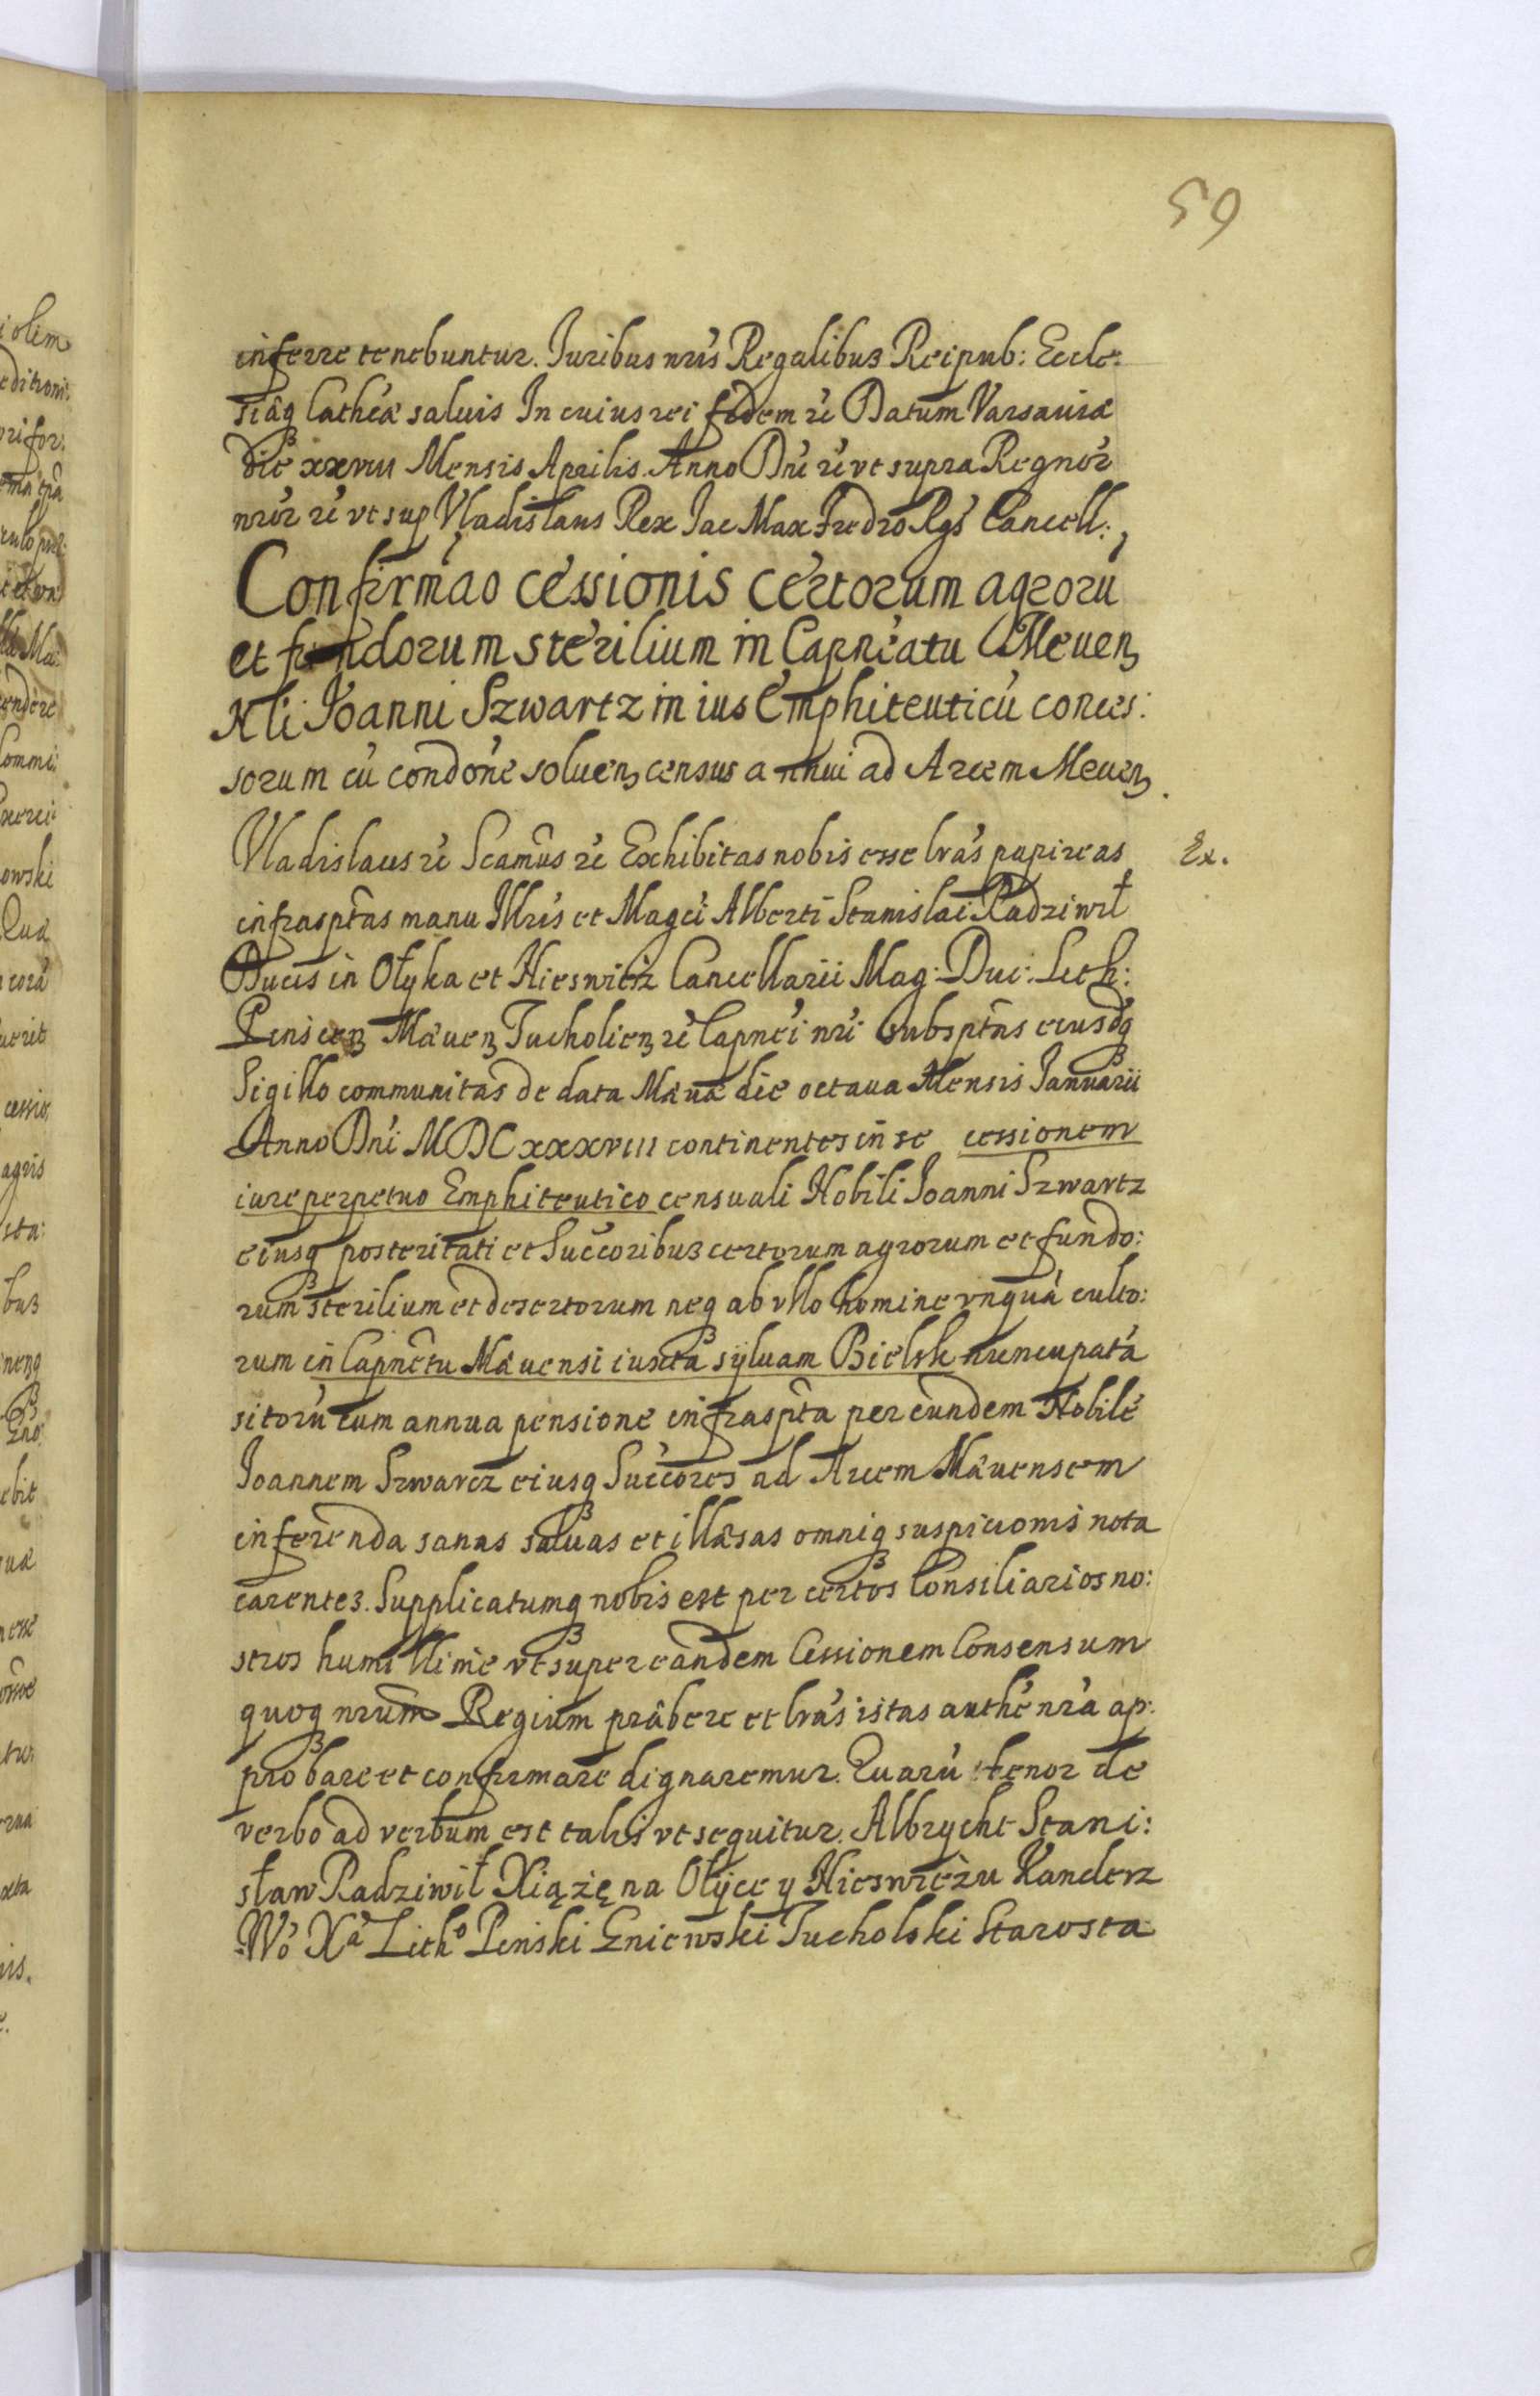 59
inferre tenebuntur. Iuribus nris Regalibus Reipub: Eccle:
siaeq Cathcae saluis In cuius rei fidem rc Datum Varsaviae
die xxviii Mensis Aprilis Anno Dni rc vt supra Regnor
nror rc vt sup Vladislaus Rex Iac Max Fredro Rgs Cancell:
Confirmao cessionis certorum agroru
et fundorum sterilium in Capneatu Meuen
Nli Ioanni Szwartz in ius Emphiteuticu conces:
sorum cu condone soluen census annui ad Arcem Meuen.
Vladislaus rc Scamus rc Exhibitas nobis esse lras papireas
Ex.
infrasptas manu Illris et Magci Alberti Stanislai Radziwił
Ducis in Ołyka et Nieswież Cancellarii Mag: Duc: Lith:
Pinscen Maeuen Tucholien rc Capnei nri subsptas eiusdq
Sigillo communitas de data Maevae die octaua Mensis Ianuarii
Anno Dni MDCxxxviii continentes in se cessionem
iure perpetuo Emphiteutico censuali Nobili Ioanni Szwartz
eiusq posteritati et Succoribus certorum agrorum et fundo:
rum sterilium et desertorum neq ab vllo homine vnqua culto:
rum in Capnetu Maeuensi iuxta syluam Bielsk nuncupata
sitoru cum annua pensione infraspta per eundem Nobile
Ioannem Szwarcz eiusq Succores ad Arcem Maeuensem
inferenda sanas saluas et illaesas omniq suspicionis nota
carentes. Supplicatumq nobis est per certos Consiliarios no:
stros humillime vt super eandem Cessionem Consensum
quoq nrum Regium praebere et lras istas authe nra ap:
probare et confirmare dignaremur. Quaru tenor de
verbo ad verbum est talis vt sequitur. Albrycht Stani:
sław Radziwił Xiążę na Ołyce y Nieswieżu Kanclerz
Wo Xa Litho Pinski Gniewski Tucholski Starosta